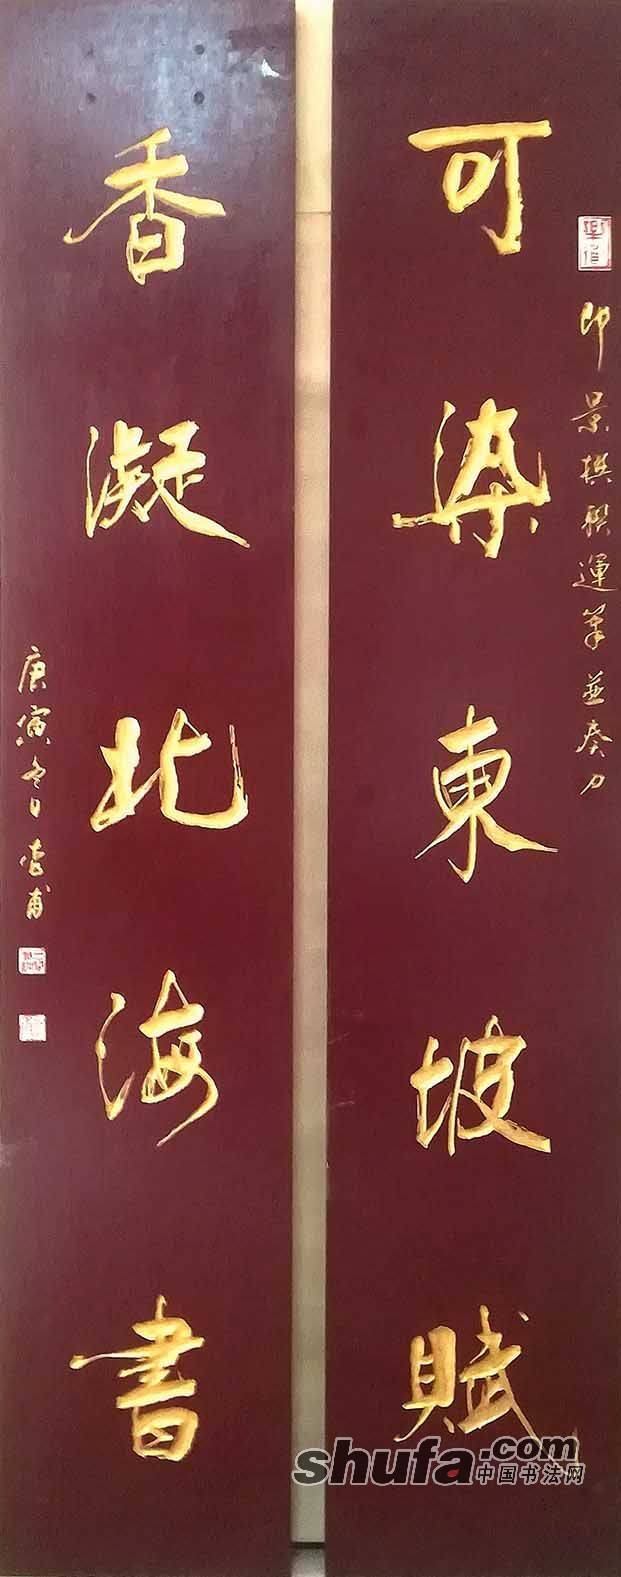 可染東坡賦
印景撰联運筆並奏刀
香凝北海書
庚寅冬日
shufa.com
中国书法网